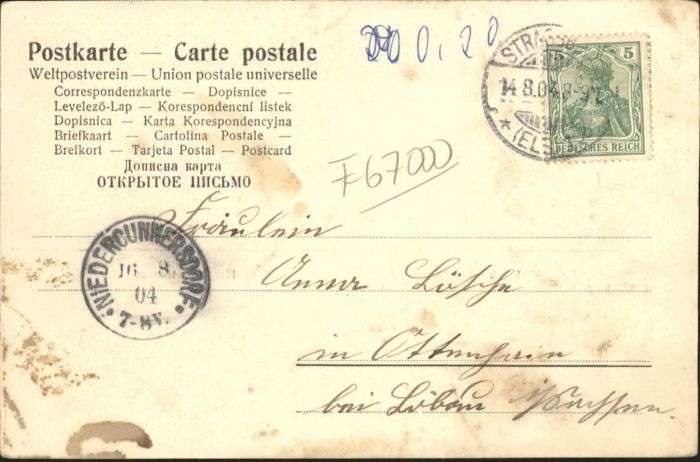 Postkarte — Carte postale
Weltpostverein — Union postale universelle
Correspondenzkarte — Dopisnice —
Levelező-Lap — Korespondencní listek
Dopisnica — Karta Korespondencyjna
Briefkaart — Cartolina Postale —
Brefkort — Tarjeta Postal — Postcard
Дописна карта
ОТКРЫТОЕ ПИСЬМО
0,20
STRASS
14.8.04
*(ELS
5
DEUTSCHES REICH
F67000
NIEDERCUNNERSDORF.
16. 8.
04
7-8V.
Fräulein
Anna Lösche
in Ottenhain
bei Löbau i/Sachsen.